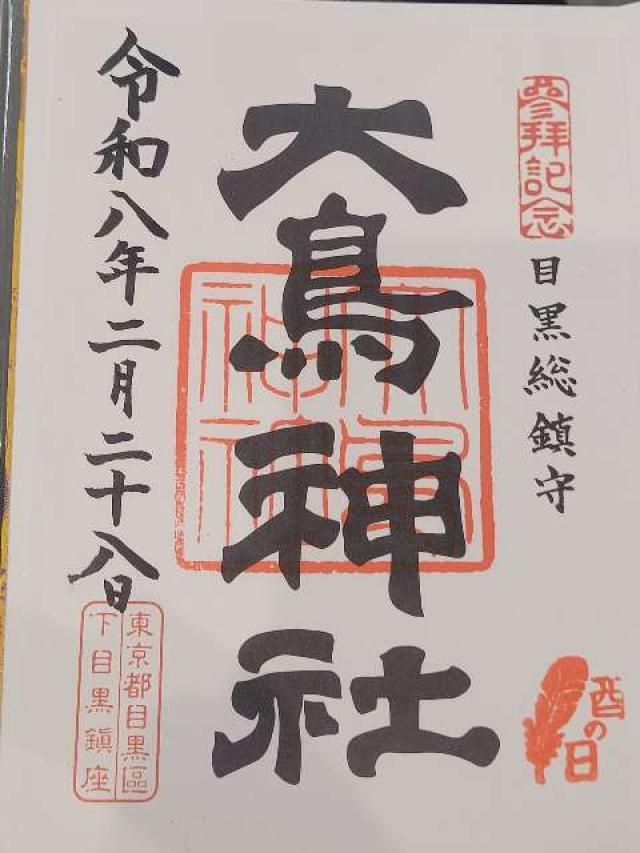 參拝記念
目黒総鎮守
大鳥神社
大鳥神社
令和八年二月二十八日
東京都目黒區
下目黒鎮座
酉の日